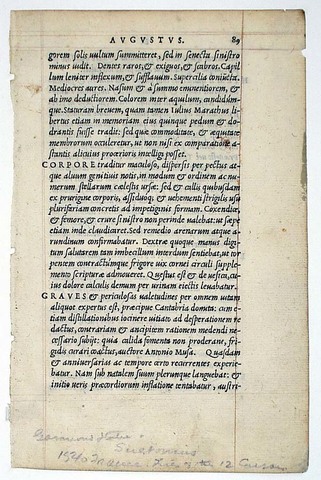 AVGVSTVS. 89
gorem solis uultum summitteret, sed in senecta sinistro
minus uidit. Dentes raros, & exiguos, & scabros. Capil
lum leniter inflexum, & sufflauum. Supercilia coniūcta.
Mediocres aures. Nasum & à summo eminentiorem, &
ab imo deductiorem. Colorem inter aquilum, candidúm-
que. Staturam breuem, quam tamen Iulius Marathus li
bertus etiam in memoriam eius quinque pedum & do-
drantis fuisse tradit: sed quæ commoditate, & æquitate
membrorum occuleretur, ut non nisi ex comparatione a-
stantis alicuius procerioris intelligi posset.
CORPORE traditur maculoso, dispersis per pectus at-
que aluum genitiuis notis, in modum & ordinem ac nu-
merum stellarum cælestis ursæ: sed & callis quibusdam
ex prurigine corporis, assiduóq; & uehementi strigilis usu
plurifariam concretis ad impetiginis formam. Coxendice,
& femore, & crure sinistro non perinde ualebat: ut sæpe
etiam inde claudicaret. Sed remedio arenarum atque a-
rundinum confirmabatur. Dextræ quoque manus digi
tum salutarem tam imbecillum interdum sentiebat, ut tor
pentem contractúmque frigore uix cornei circuli supple-
mento scripturæ admoueret. Questus est & de uesica, cu-
ius dolore calculis demum per urinam eiectis leuabatur.
GRAVES & periculosas ualetudines per omnem uitam
aliquot expertus est, præcipue Cantabria domita: cum e-
tiam distillationibus iocinere uitiato ad desperationem re
dactus, contrariam & ancipitem rationem medendi ne-
cessario subijt: quia calida fomenta non proderant, fri-
gidis curari coactus, auctore Antonio Musa. Quasdam
& anniuersarias ac tempore certo recurrentes experie-
batur. Nam sub natalem suum plerunque languebat: &
initio ueris præcordiorum inflatione tentabatur, austri-
Suetonius
1540 12